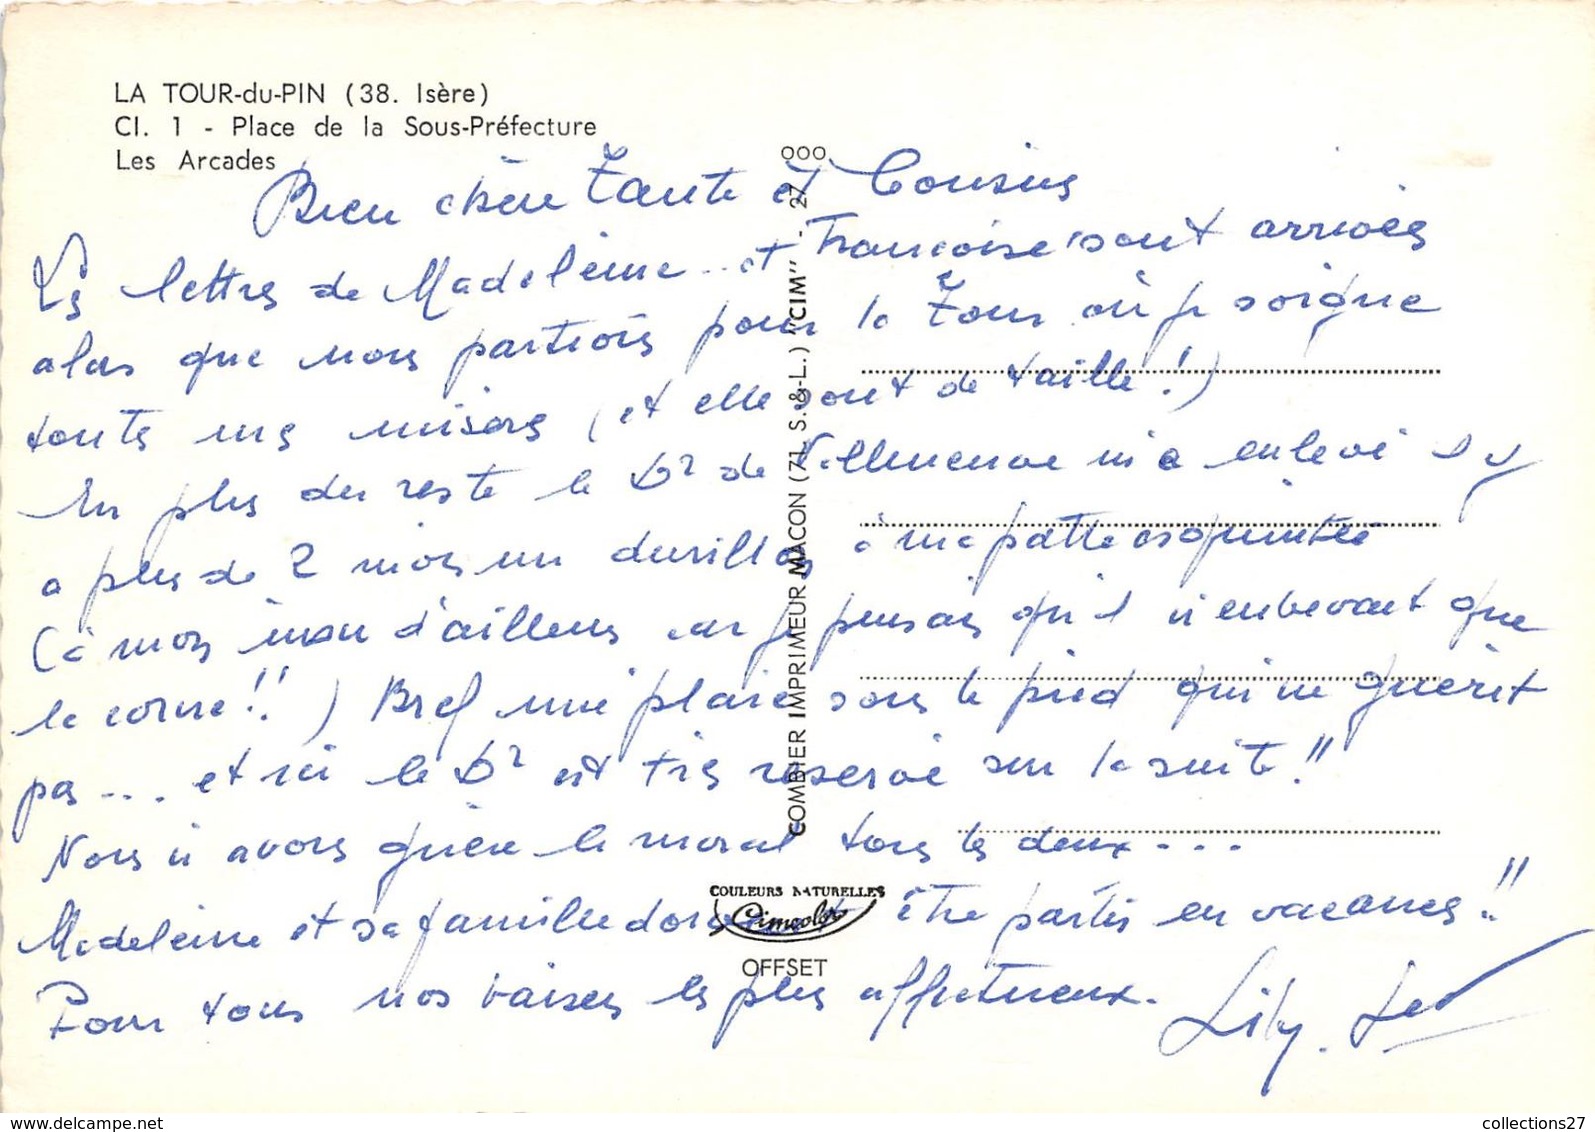 LA TOUR-du-PIN (38. Isère)
Cl. 1 - Place de la Sous-Préfecture
Les Arcades
Bien chère Tante et Cousins
Les lettres de Madeleine et Françoise sont arrivées
alors que nous partions pour la Tour où je soigne
toutes mes misères (et elle sont de taille!)
En plus du reste le Dr de Villeneuve m'a enlevé il y
a plus de 2 mois un durillon à ma patte esquintée
(à mon insu d'ailleurs car je pensais qu'il n'enlevait que
la corne!!) Bref une plaie sous le pied qui ne guérit
pas... et ici le Dr est très réservé sur la suite!!
Nous n'avons guère le moral tous les deux...
Madeleine et sa famille doivent être partis en vacances!!
Pour tous nos baisers les plus affectueux.
Lily.
COMBIER IMPRIMEUR MACON (71. S.-&-L.) "CIM" - 27
000
COULEURS NATURELLES
Cimcolor
OFFSET
collections27
www.delcampe.net